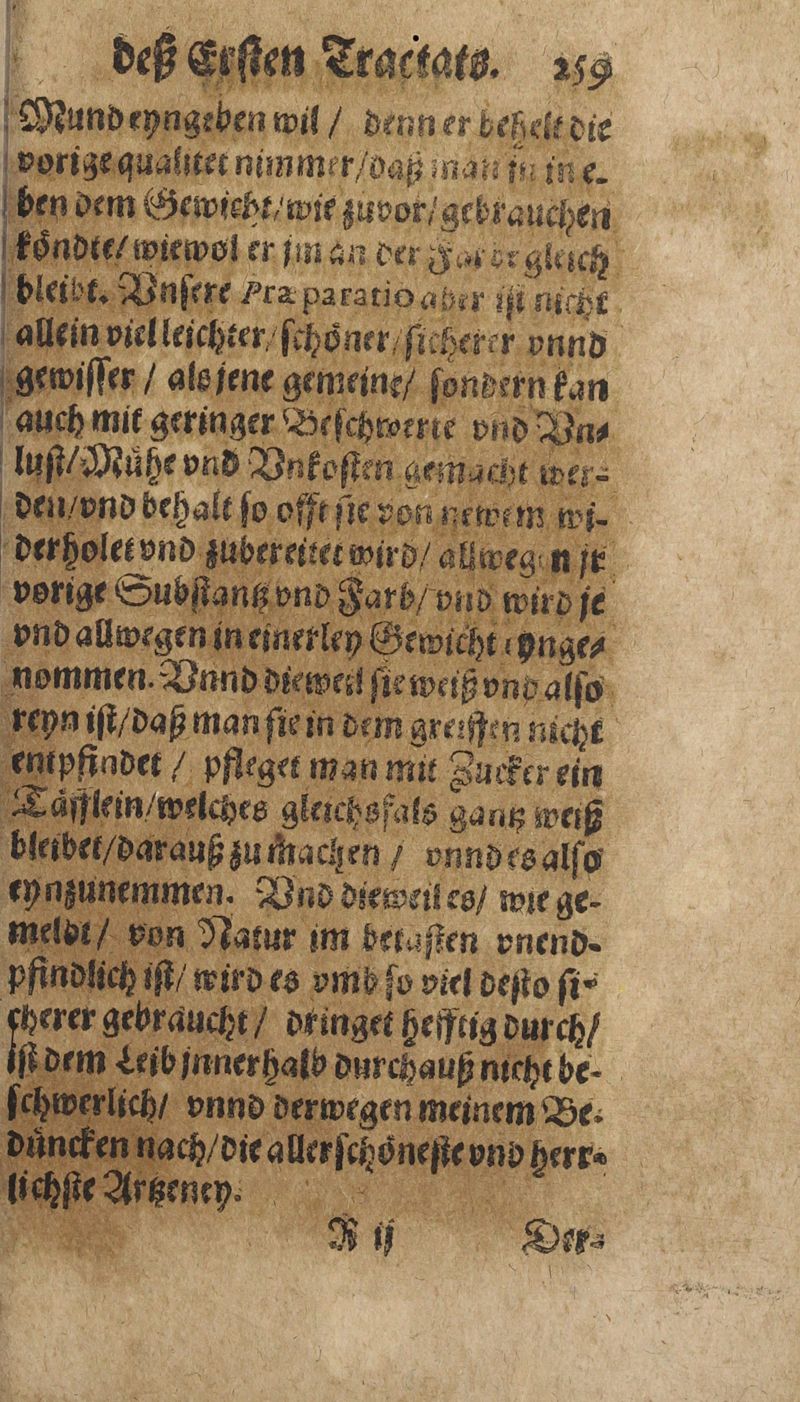 deß Ersten Tractats. 259
Mund eyngeben wil / denn er behelt die
vorige qualitet nimmer/daß man in in e-
ben dem Gewicht/wie zuvor/gebrauchen
köndte/wiewol er jm an der Farb gleich
bleibt. Vnsere Præparatio aber ist nicht
allein viel leichter/schöner/sicherer vnnd
gewisser / als jene gemeine/ sondern kan
auch mit geringer Beschwerte vnd Vn-
lust/Mühe vnd Vnkosten gemacht wer-
den/vnd behalt so offt sie von newem wi-
derholet vnd zubereitet wird/ allwegen jr
vorige Substantz vnd Farb/vnd wird je
vnd allwegen in einerley Gewicht eynge-
nommen. Vnnd dieweil sie weiß vnd also
reyn ist/daß man sie in dem greiffen nicht
entpfindet / pfleget man mit Zucker ein
Täfflein/welches gleichsfals gantz weiß
bleibet/darauß zu machen / vnnd es also
eynzunemmen. Vnd dieweil es/ wie ge-
meldt/ von Natur im betasten vnend-
pfindlich ist/ wird es vmb so viel desto si-
cherer gebraucht/ dringet hefftig durch/
ist dem Leib jnnerhalb durchauß nicht be-
schwerlich/ vnnd derwegen meinem Be-
düncken nach/die allerschöneste vnd herr-
lichste Artzeney.
R ij Der-